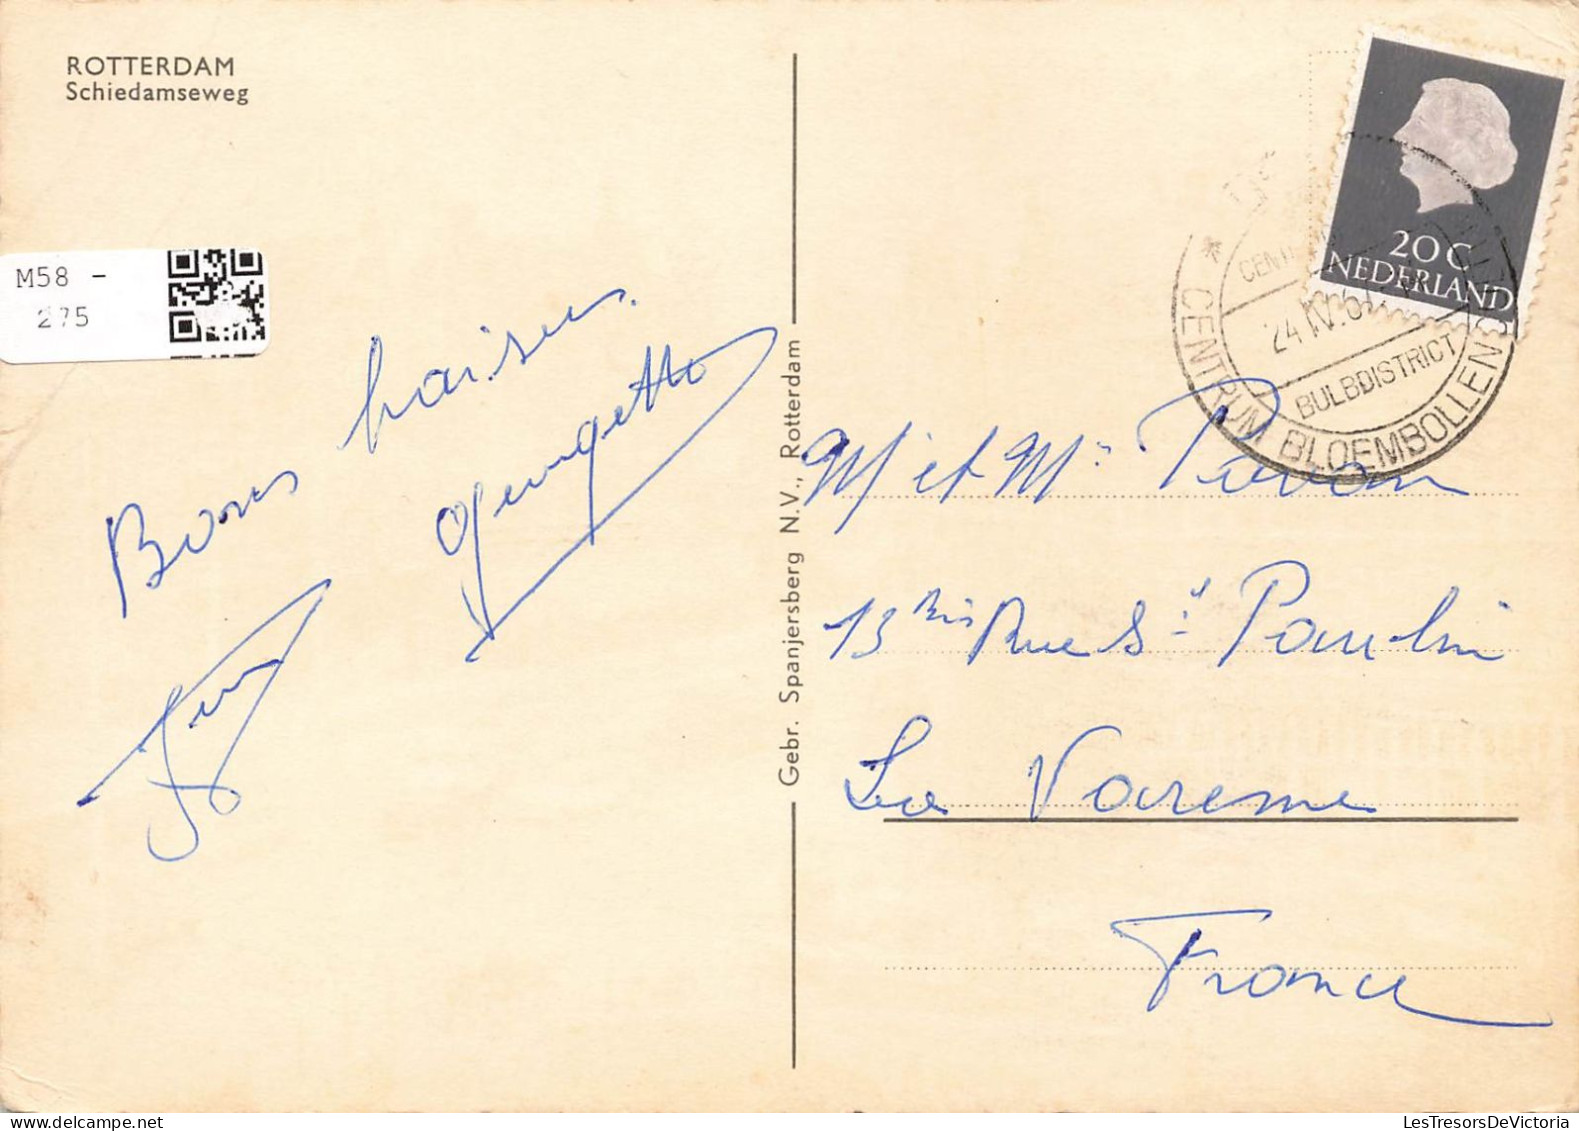 ROTTERDAM
Schiedamseweg
M58 -
275
Bons baisers.
Georgette
Gebr. Spanjersberg N.V., Rotterdam
20 C
NEDERLAND
24 IV.6
BULBDISTRICT
* CENTRUM BLOEMBOLLEN
M et Mme
13 bis Rue St Paulin
La Varenne
France
LesTresorsDeVictoria.com